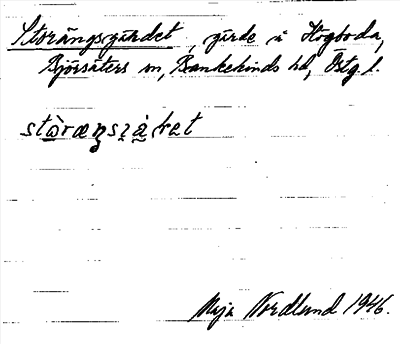 Storängsgärdet, gärde i Hogboda,
Björsäters sn, Bankekinds hd, Östg. l.
Maja Nordlund 1946.